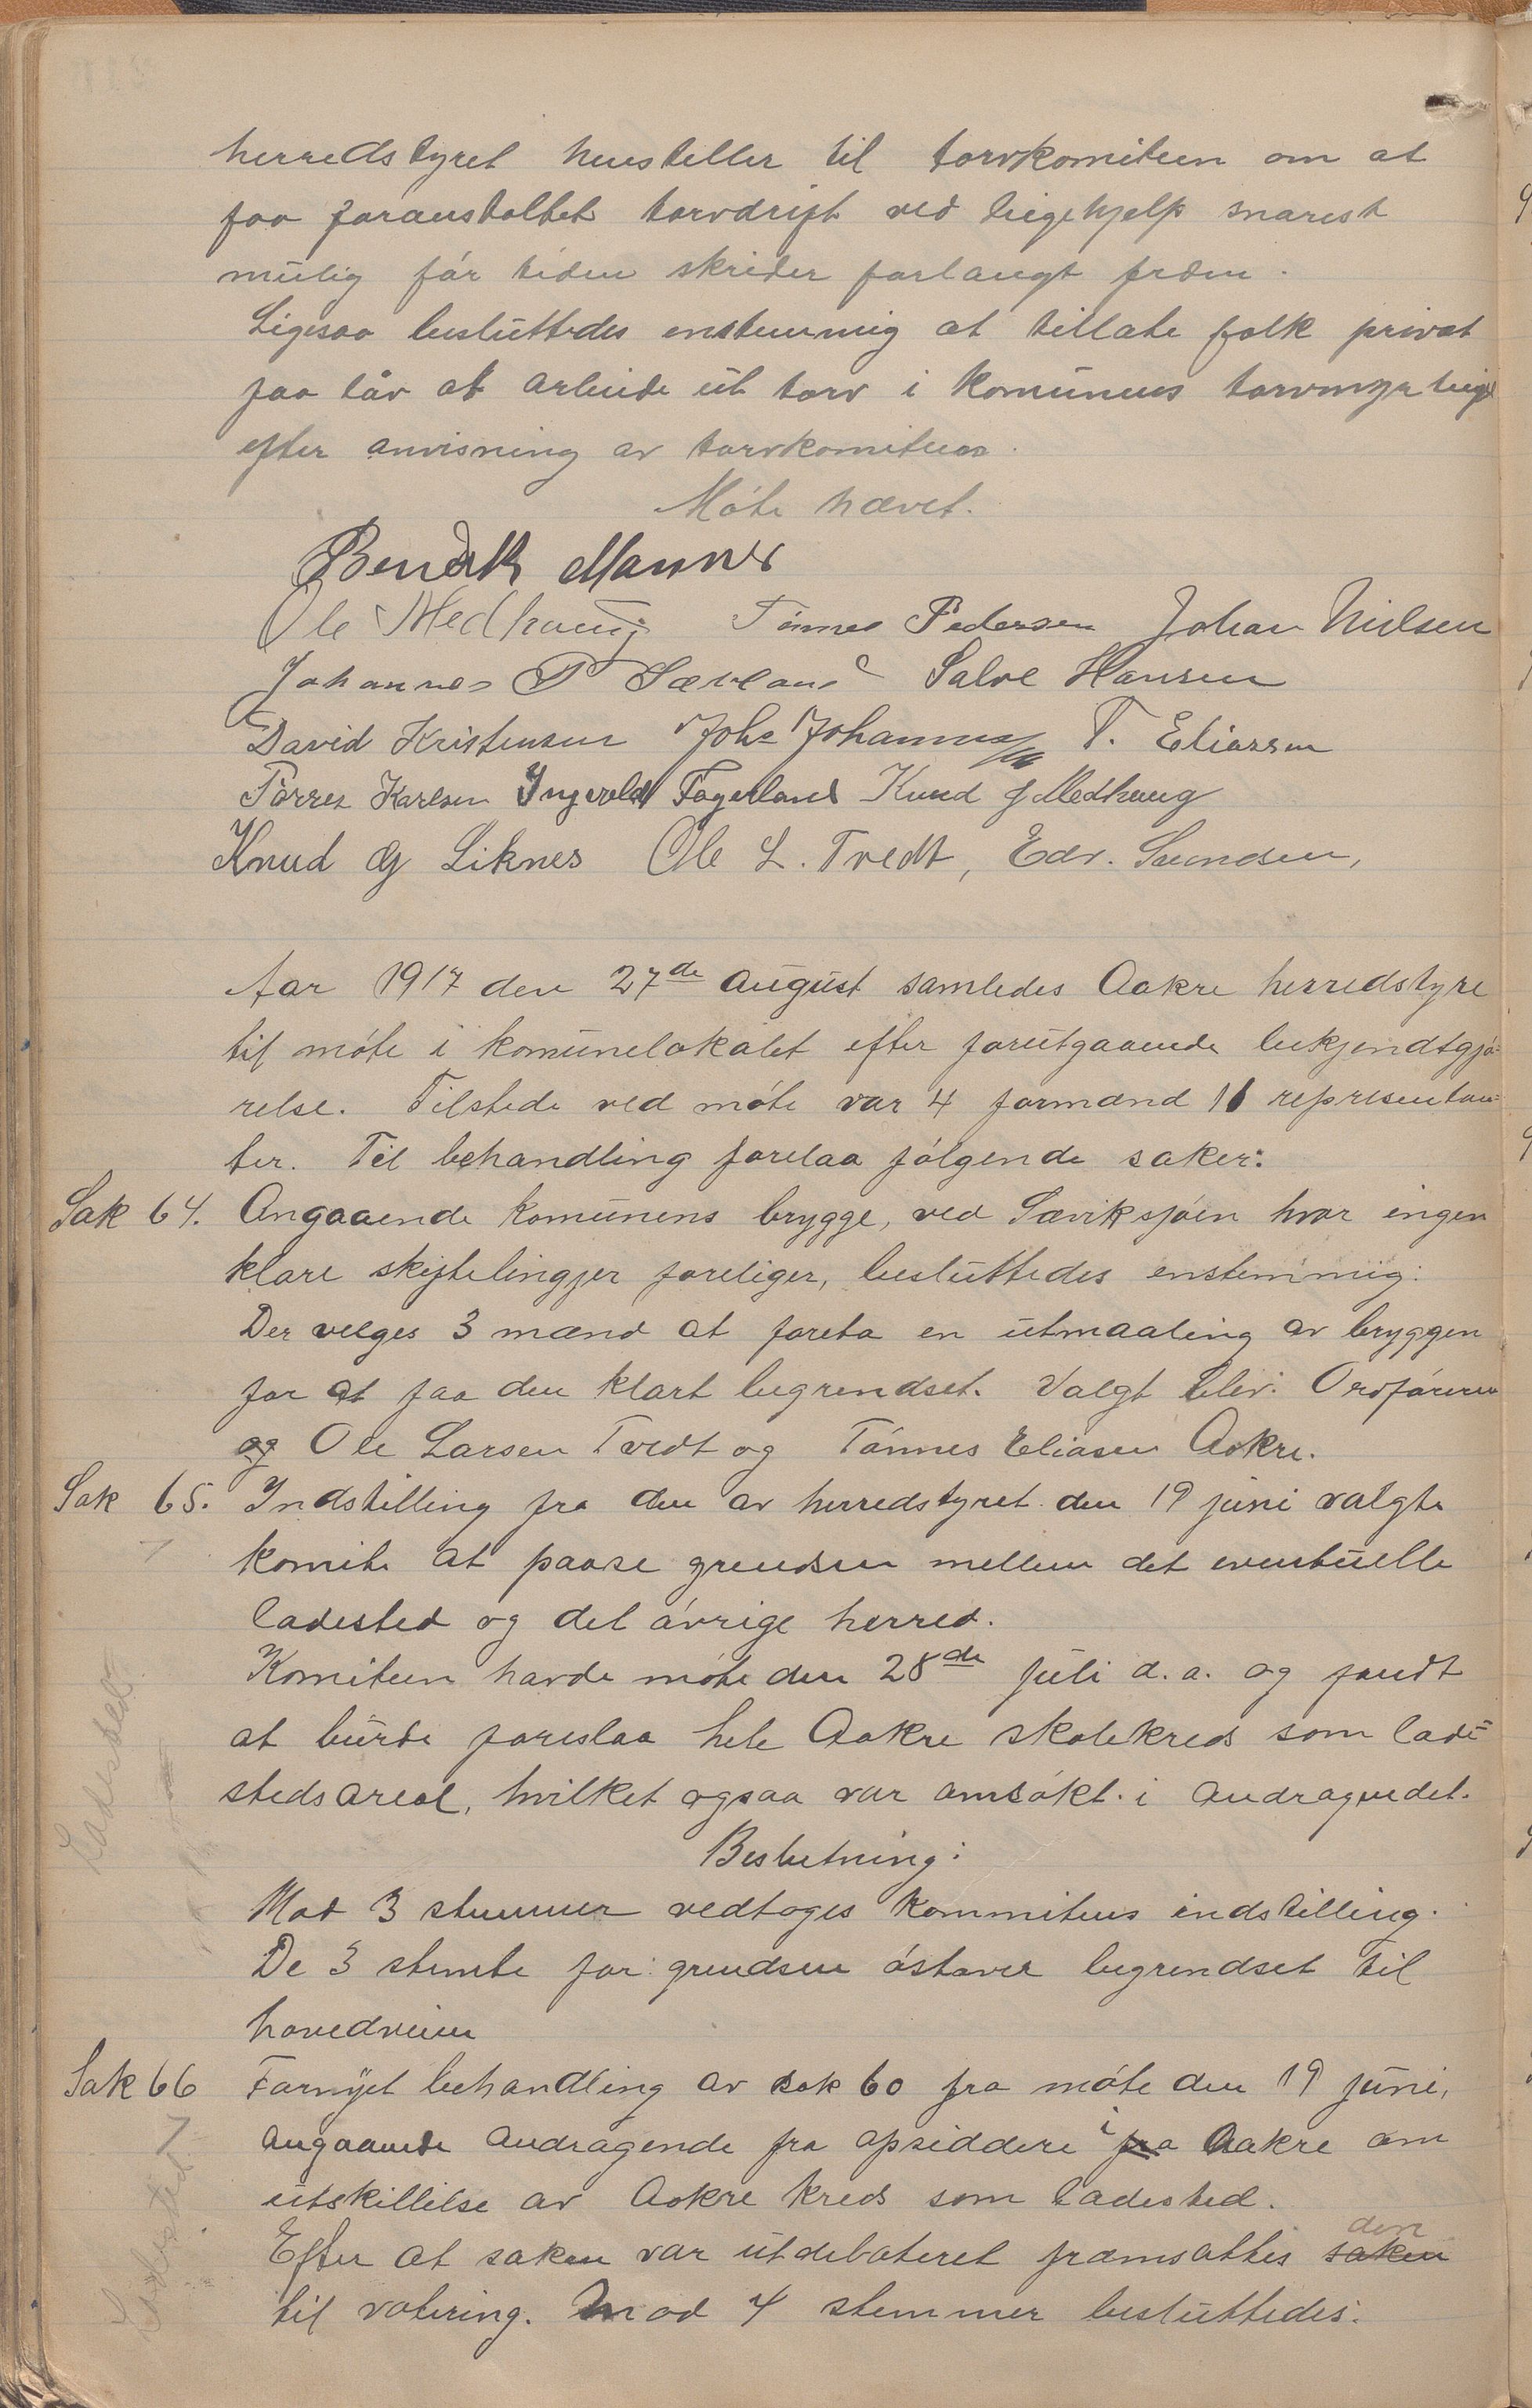 herredstyret henstiller til torvkomiteen om at
faa foranstaltet torvdrift ved leigehjelp snarest
mulig før tiden skrider forlangt frem.
Ligesaa besluttedes enstemmig at tillate folk privat
faa lov at arbeide ut torv i komunens torvmyr
efter anvisning av torvkomiteen.
Møte hævet.
Bendik Mannes
Ole Medhaug Tønnes Pedersen Johan Nielsen
Johannes P Sævland Salve Hansen
David Kristensen Johs Johannes T. Eliassen
Tørres Karlsen Ingevald Fagerland Knud J Medhaug
Knud G Liknes Ole L. Tvedt, Edv.
Aar 1917 den 27de august samledes Aakre herredstyre
til møte i komunelokalet efter forutgaaende bekjendtgjø-
relse. Tilstede ved møte var 4 formænd 11 representan-
ter. Til behandling forelaa følgende saker:
Sak 64. Angaaende komunens brygge, ved Sæviksjøen hvor ingen
klare skiftelingjer foreliger, besluttedes enstemmig:
Der velges 3 mænd at foreta en utmaaling av bryggen
for at faa den klart begrendset. Valgt blev: Ordføreren
og Ole Larsen Tvedt og Tønnes Eliasen Aakre.
Sak 65. Indstilling fra den av herredstyret den 19 juni valgte
komite at paase grendsen mellem det eventuelle
ladested og det øvrige herred.
Komiteen havde møte den 28de juli d.a. og fandt
at burde foreslaa hele Aakre skolekreds som lade-
stedsareal, hvilket ogsaa var omsøkt i andragendet.
Ladested
Beslutning:
Mot 3 stemmer vedtoges kommiteens indstilling.
De 3 stemte for grendsen østover begrendset til
hovedveien
Sak 66 Fornyet behandling av sak 60 fra møte den 19 juni,
angaaende andragende fra opsiddere i fra Aakre om
utskillelse av Aakre kreds som ladested.
Ladested
Efter at saken var utdebateret fræmsattes saken den
til votering. Mod 4 stemmer besluttedes: